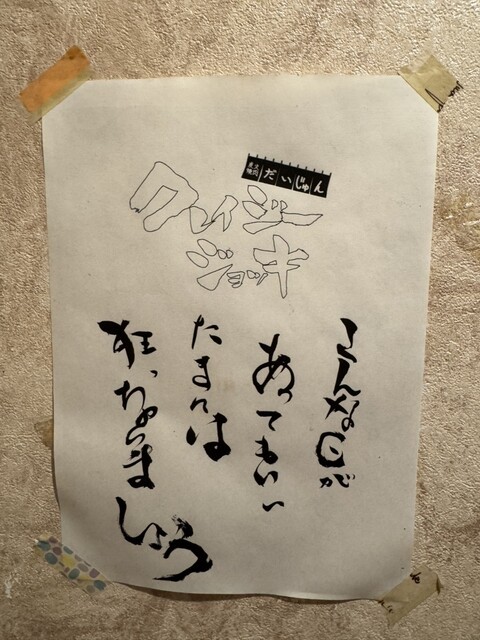 だいじゅん
クレイジー
ジョッキ
こんな日が
あってもいい
たまには
狂っちゃいま
しょう